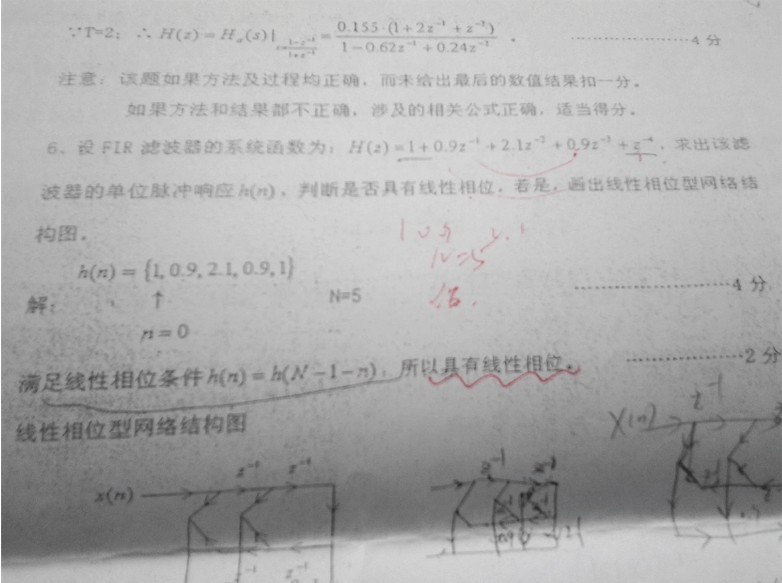 ∵T=2; ∴ H(z) = H_a(s)| = 0.155·(1+2z⁻¹+z⁻²) / 1−0.62z⁻¹+0.24z⁻² . ………………4 分
注意：该题如果方法及过程均正确，而未给出最后的数值结果扣一分。
如果方法和结果都不正确，涉及的相关公式正确，适当得分。
6、设 FIR 滤波器的系统函数为：H(z)=1+0.9z⁻¹+2.1z⁻²+0.9z⁻³+z⁻⁴，求出该滤
波器的单位脉冲响应 h(n)，判断是否具有线性相位，若是，画出线性相位型网络结
构图。
1 0.9 2.1
N=5
h(n) = {1, 0.9, 2.1, 0.9, 1}
解： ↑ N=5 ………………4 分
n=0
满足线性相位条件 h(n) = h(N−1−n)，所以具有线性相位。 ………………2 分
线性相位型网络结构图
X(n) z⁻¹
z⁻¹ z⁻¹
x(n)
z⁻¹ z⁻¹
z⁻¹ z⁻¹